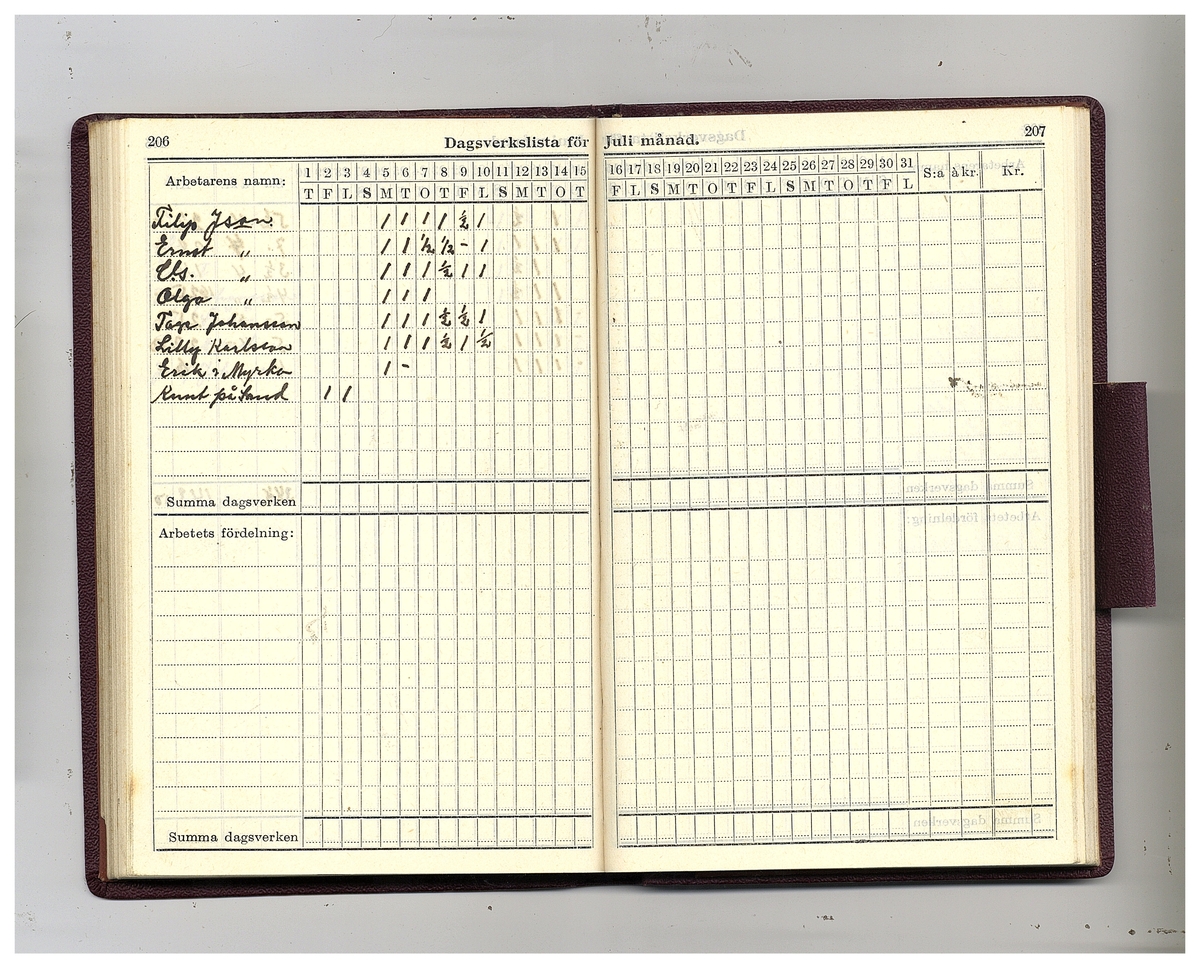 206
Dagsverkslista för
Arbetarens namn: 1 2 3 4 5 6 7 8 9 10 11 12 13 14 15
T F L S M T O T F L S M T O T
Filip Json. 1 1 1 1 ½ 1
Ernst „ 1 1 ½ ½ - 1
„ 1 1 1 ½ 1 1
Olga „ 1 1 1
Tage Johansson 1 1 1 ½ ½ 1
Lilly Karlsson 1 1 1 ½ 1 ½
Erik i Myrka 1 -
Knut på Sand 1 1
Summa dagsverken
Arbetets fördelning:
Summa dagsverken
207
Juli månad.
16 17 18 19 20 21 22 23 24 25 26 27 28 29 30 31 S:a à kr. Kr.
F L S M T O T F L S M T O T F L